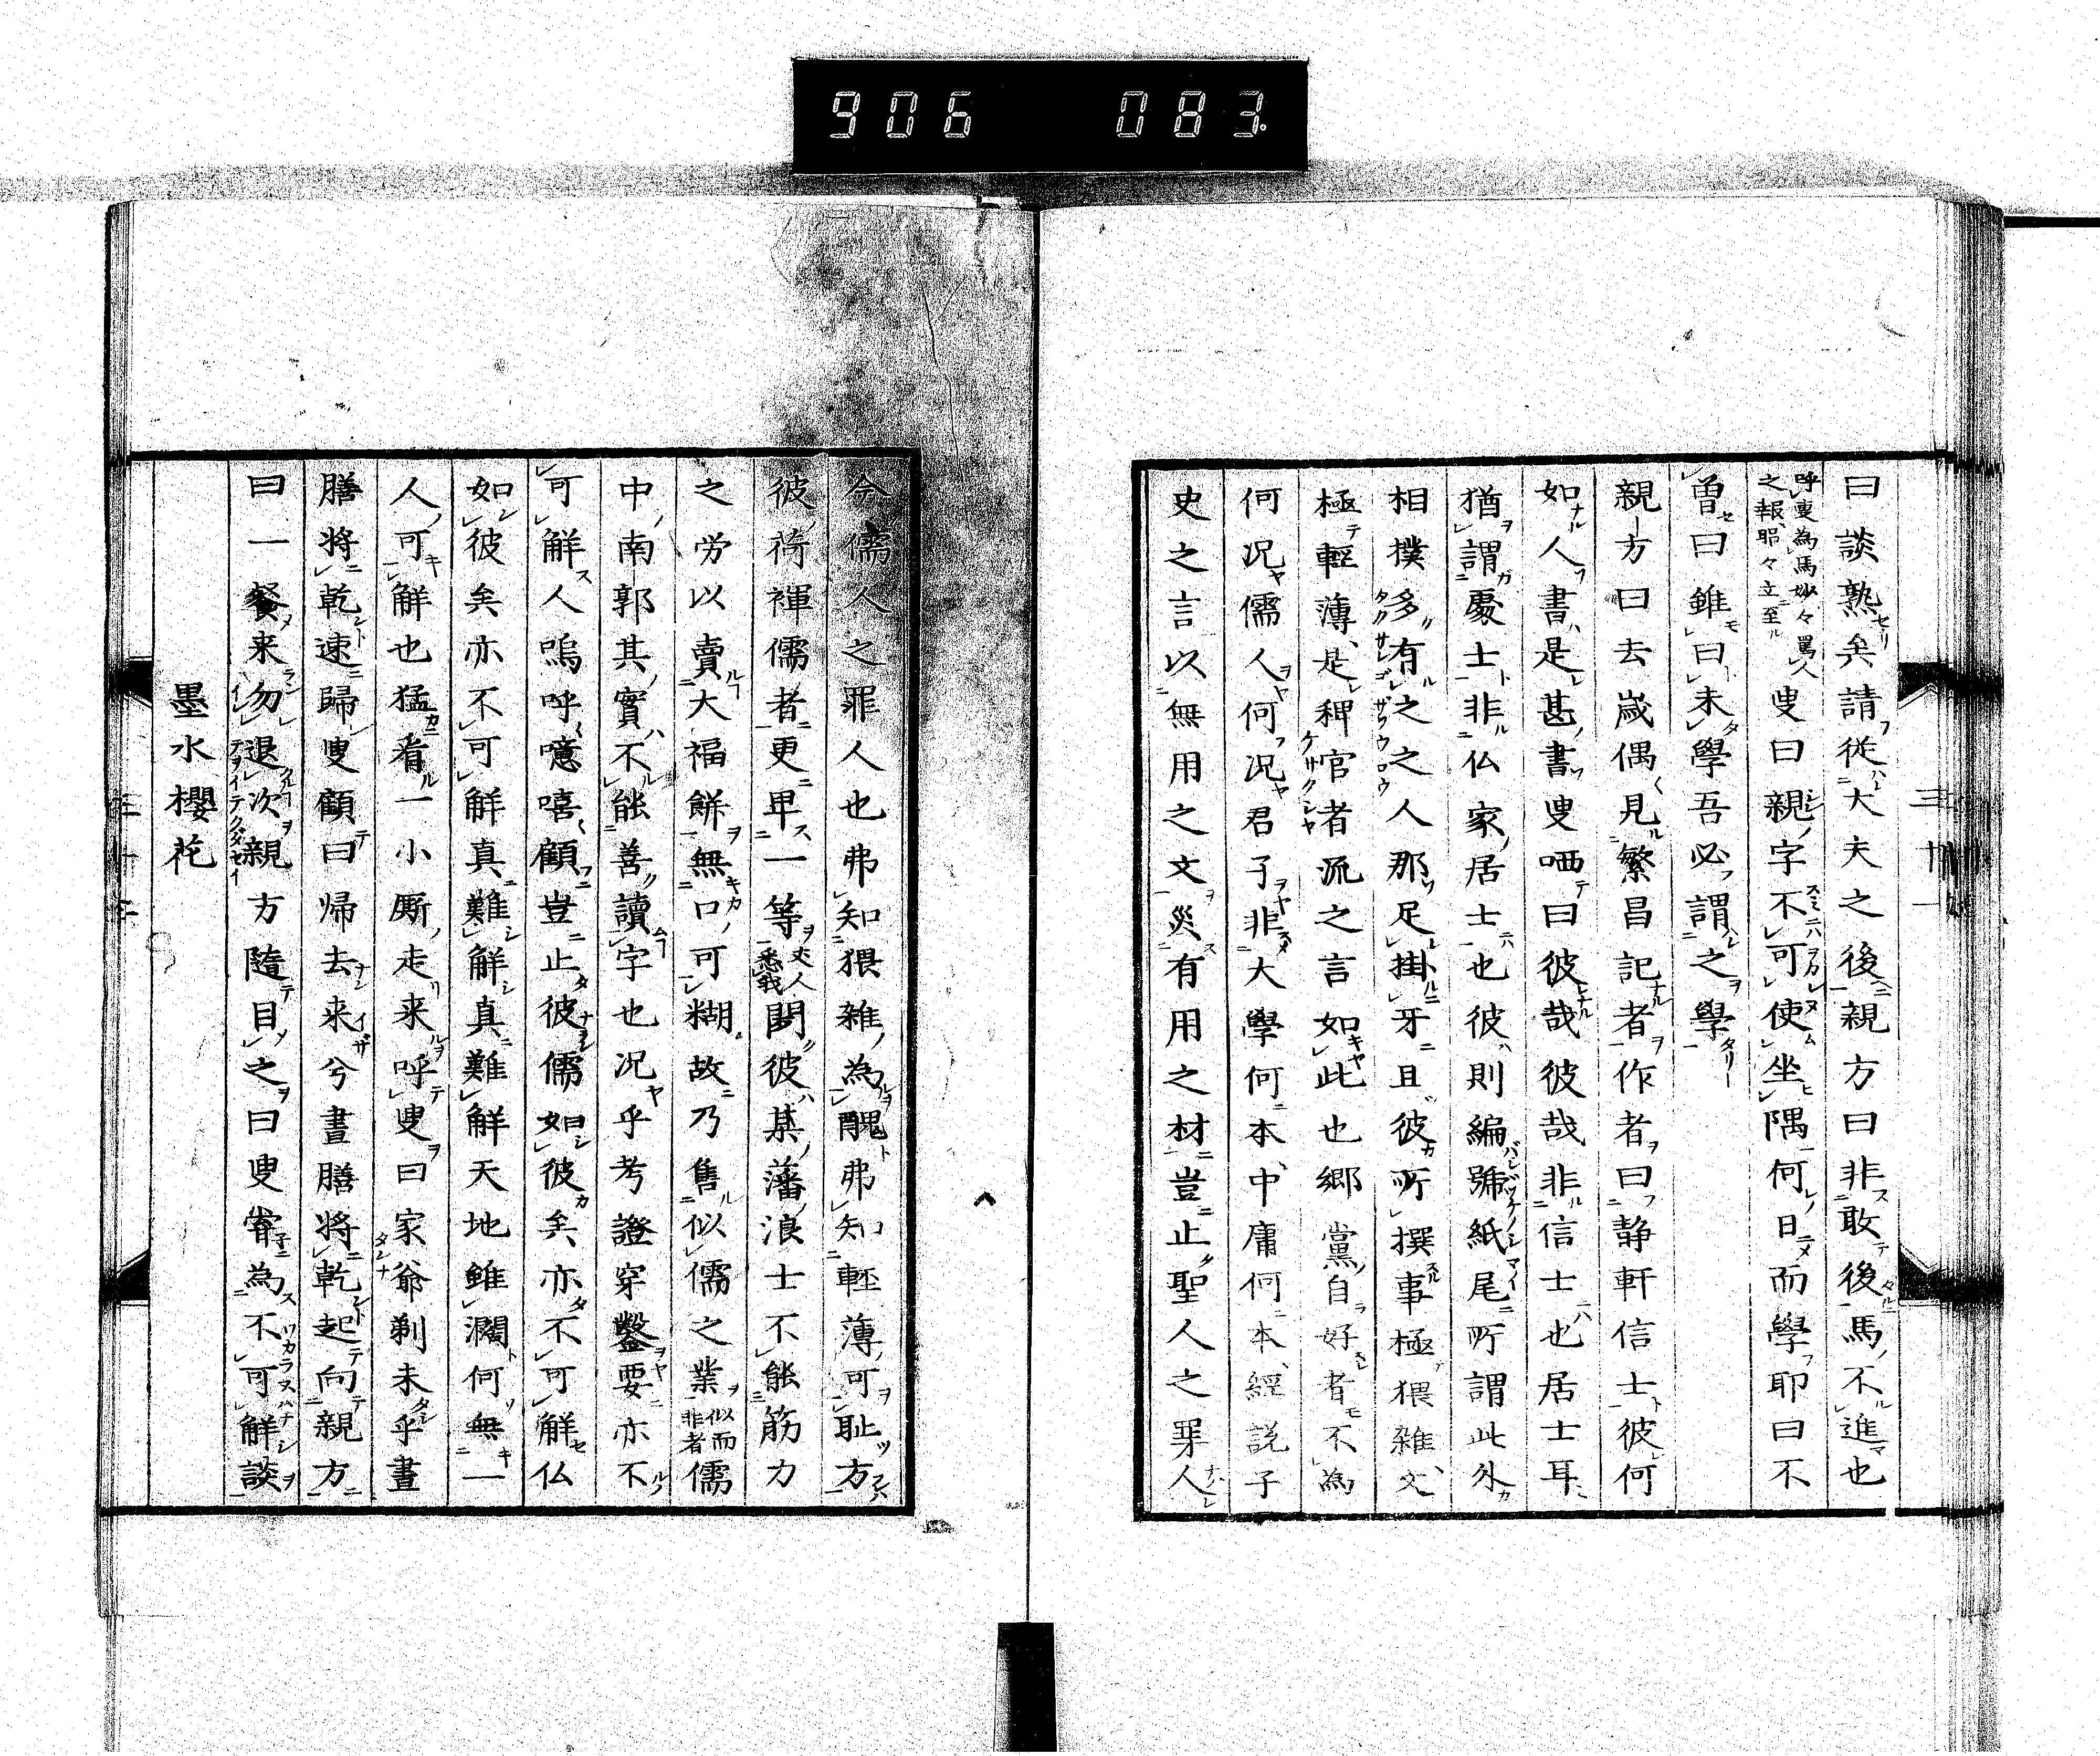 906 083.
曰談熟矣請従大夫之後親方曰非敢後馬不進也
呼叟為馬妙々罵人之報昭々立至叟曰親字不可使坐隅何日而學耶曰不
曽曰雖曰未學吾必謂之學
親方曰去歳偶見繁昌記者作者曰静軒信士彼何
如人書是甚書叟哂曰彼哉彼哉非信士也居士耳
猶謂處士非仏家居士也彼則編號紙尾所謂此外
相撲多有之之人那足掛牙且彼所撰事極猥雑文
極軽薄是稗官者流之言如此也郷黨自好者不為
何況儒人何況君子非大學何本中庸何本經説子
史之言以無用之文災有用之材豈止聖人之罪人
今儒人之罪人也弗知猥雑為醜弗知軽薄可耻方
彼荷褌儒者更卑一等丈人悉我聞彼某藩浪士不能筋力
之労以賣大福餅無口可糊故乃售似儒之業似而非者儒
中南郭其實不能善讀字也況乎考證穿鑿要亦不
可解人嗚呼噫嘻顧豈止彼儒如彼矣亦不可解仏
如彼矣亦不可解真難解真難解天地雖濶何無一
人可解也猛看一小厮走来呼叟曰家爺剃未乎晝
膳将乾速歸叟顧曰帰去来兮晝膳将乾起向親方
曰一餐来勿退次親方隨目之曰叟甞為不可解談
墨水櫻花